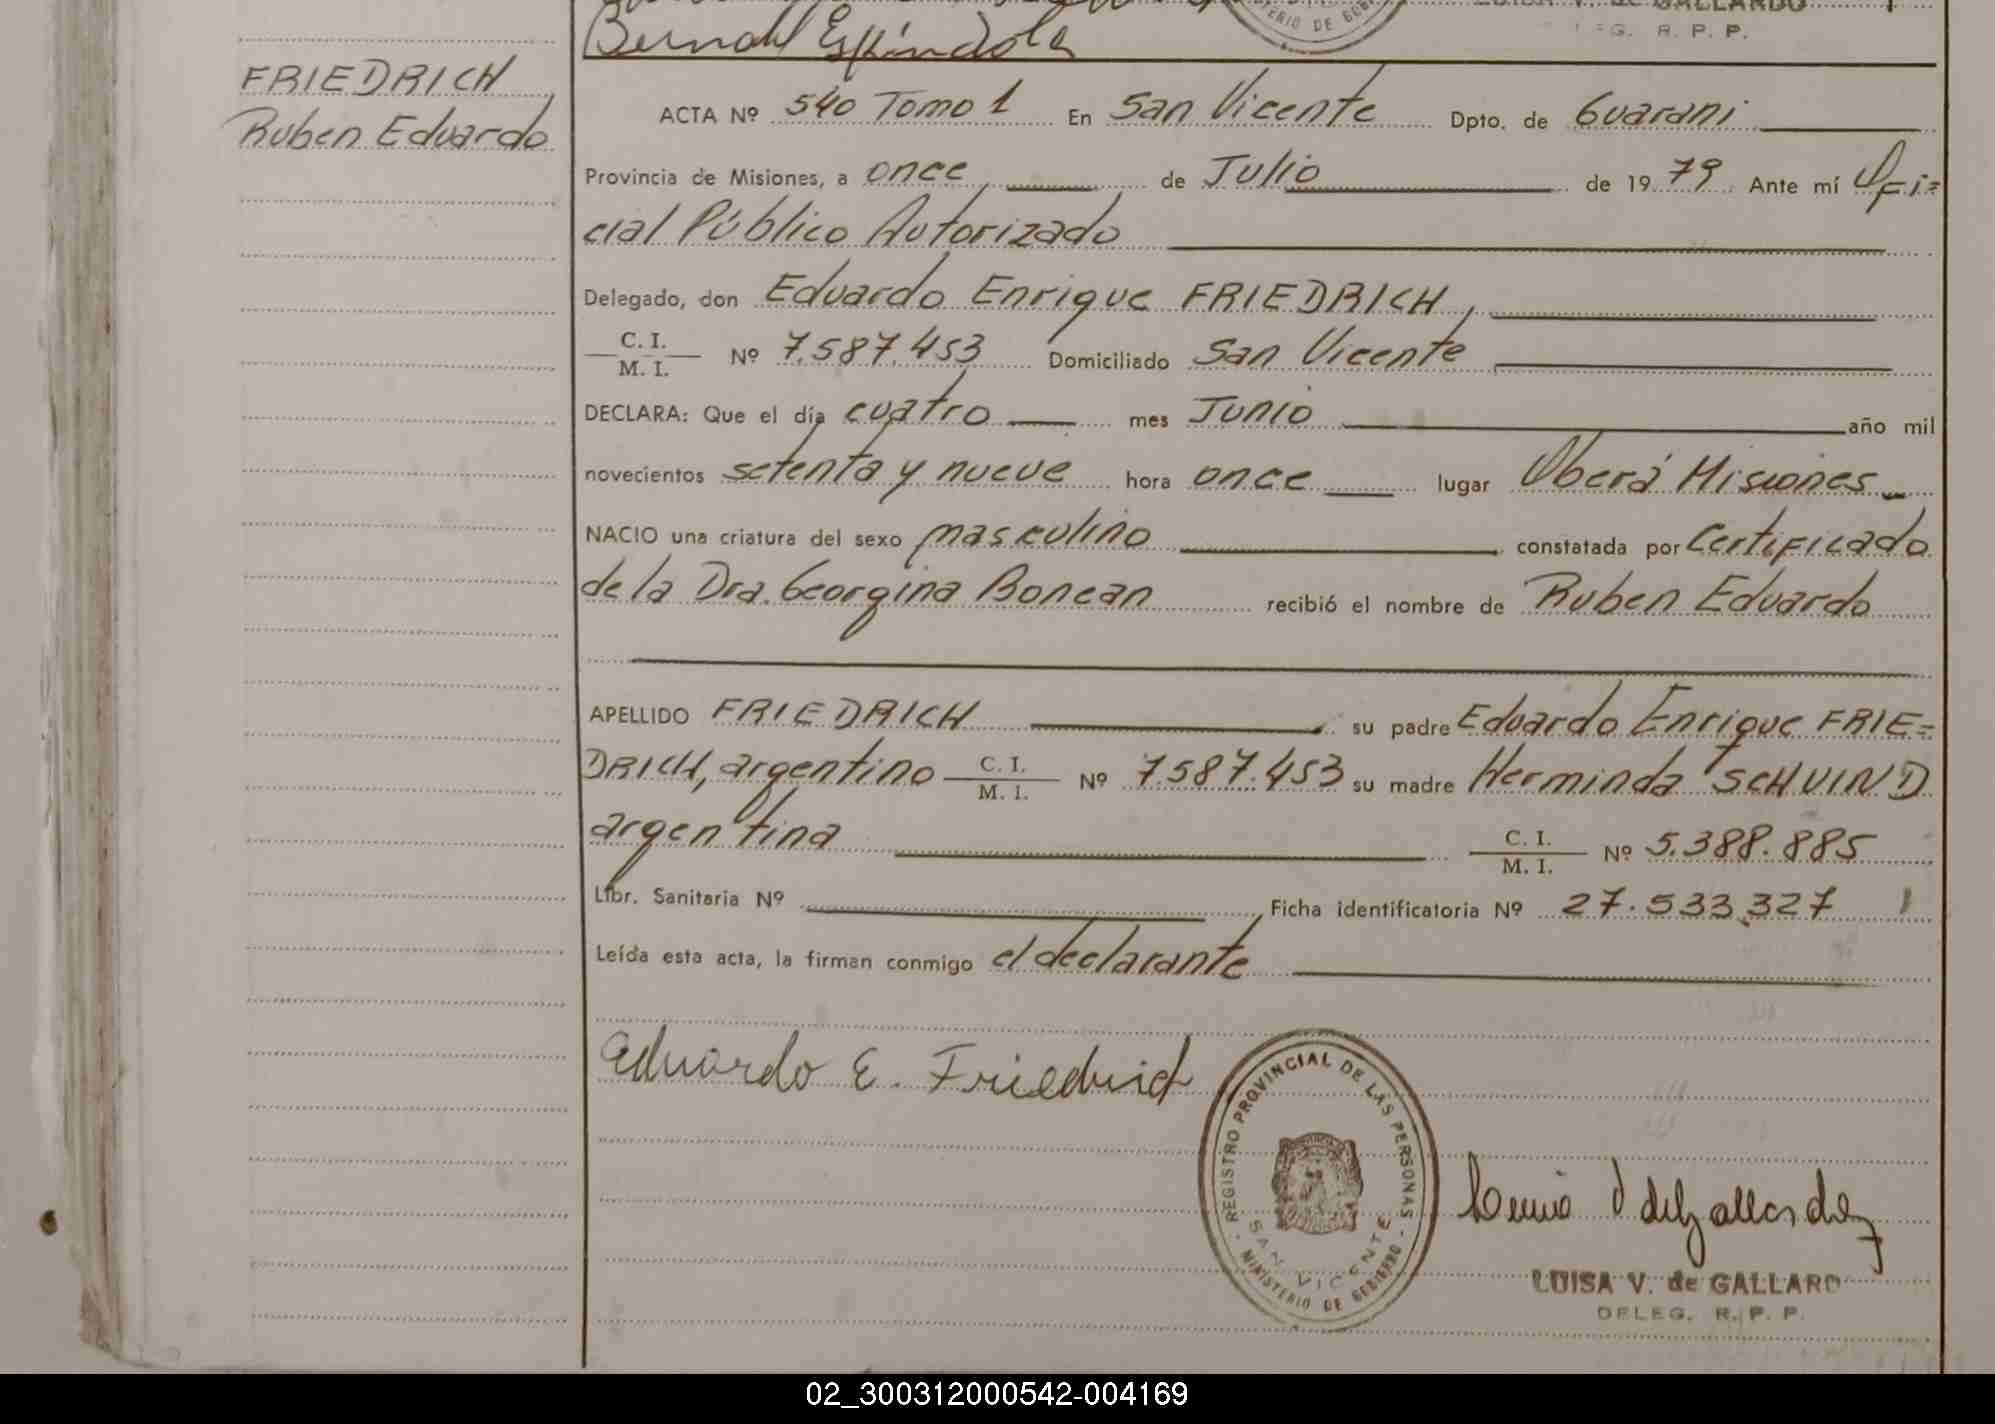 Bernal Espíndola
TERIO DE GOBI
LUISA V. de GALLARDO
EG. R. P. P.
FRIEDRICH
Ruben Eduardo
ACTA Nº 540 Tomo 1 En San Vicente Dpto. de Guarani
Provincia de Misiones, a once de Julio de 1979 Ante mí Ofi=
cial Público Autorizado
Delegado, don Eduardo Enrique FRIEDRICH,
C. I.
M. I. Nº 7.587.453 Domiciliado San Vicente
DECLARA: Que el día cuatro mes Junio año mil
novecientos setenta y nueve hora once lugar Oberá Misiones
NACIO una criatura del sexo masculino constatada por Certificado
de la Dra. Georgina Bonean recibió el nombre de Ruben Eduardo
APELLIDO FRIEDRICH su padre Eduardo Enrique FRIE=
DRICH, argentino C. I.
M. I. Nº 7.587.453 su madre Herminda SCHUIND
argentina C. I.
M. I. Nº 5.388.885
Libr. Sanitaria Nº Ficha identificatoria Nº 27.533.327
Leída esta acta, la firman conmigo el declarante
Eduardo E. Friedrich
REGISTRO PROVINCIAL DE LAS PERSONAS
SAN VICENTE
MINISTERIO DE GOBIERNO
LUISA V. de GALLARD
DELEG. R. P. P.
02_300312000542-004169